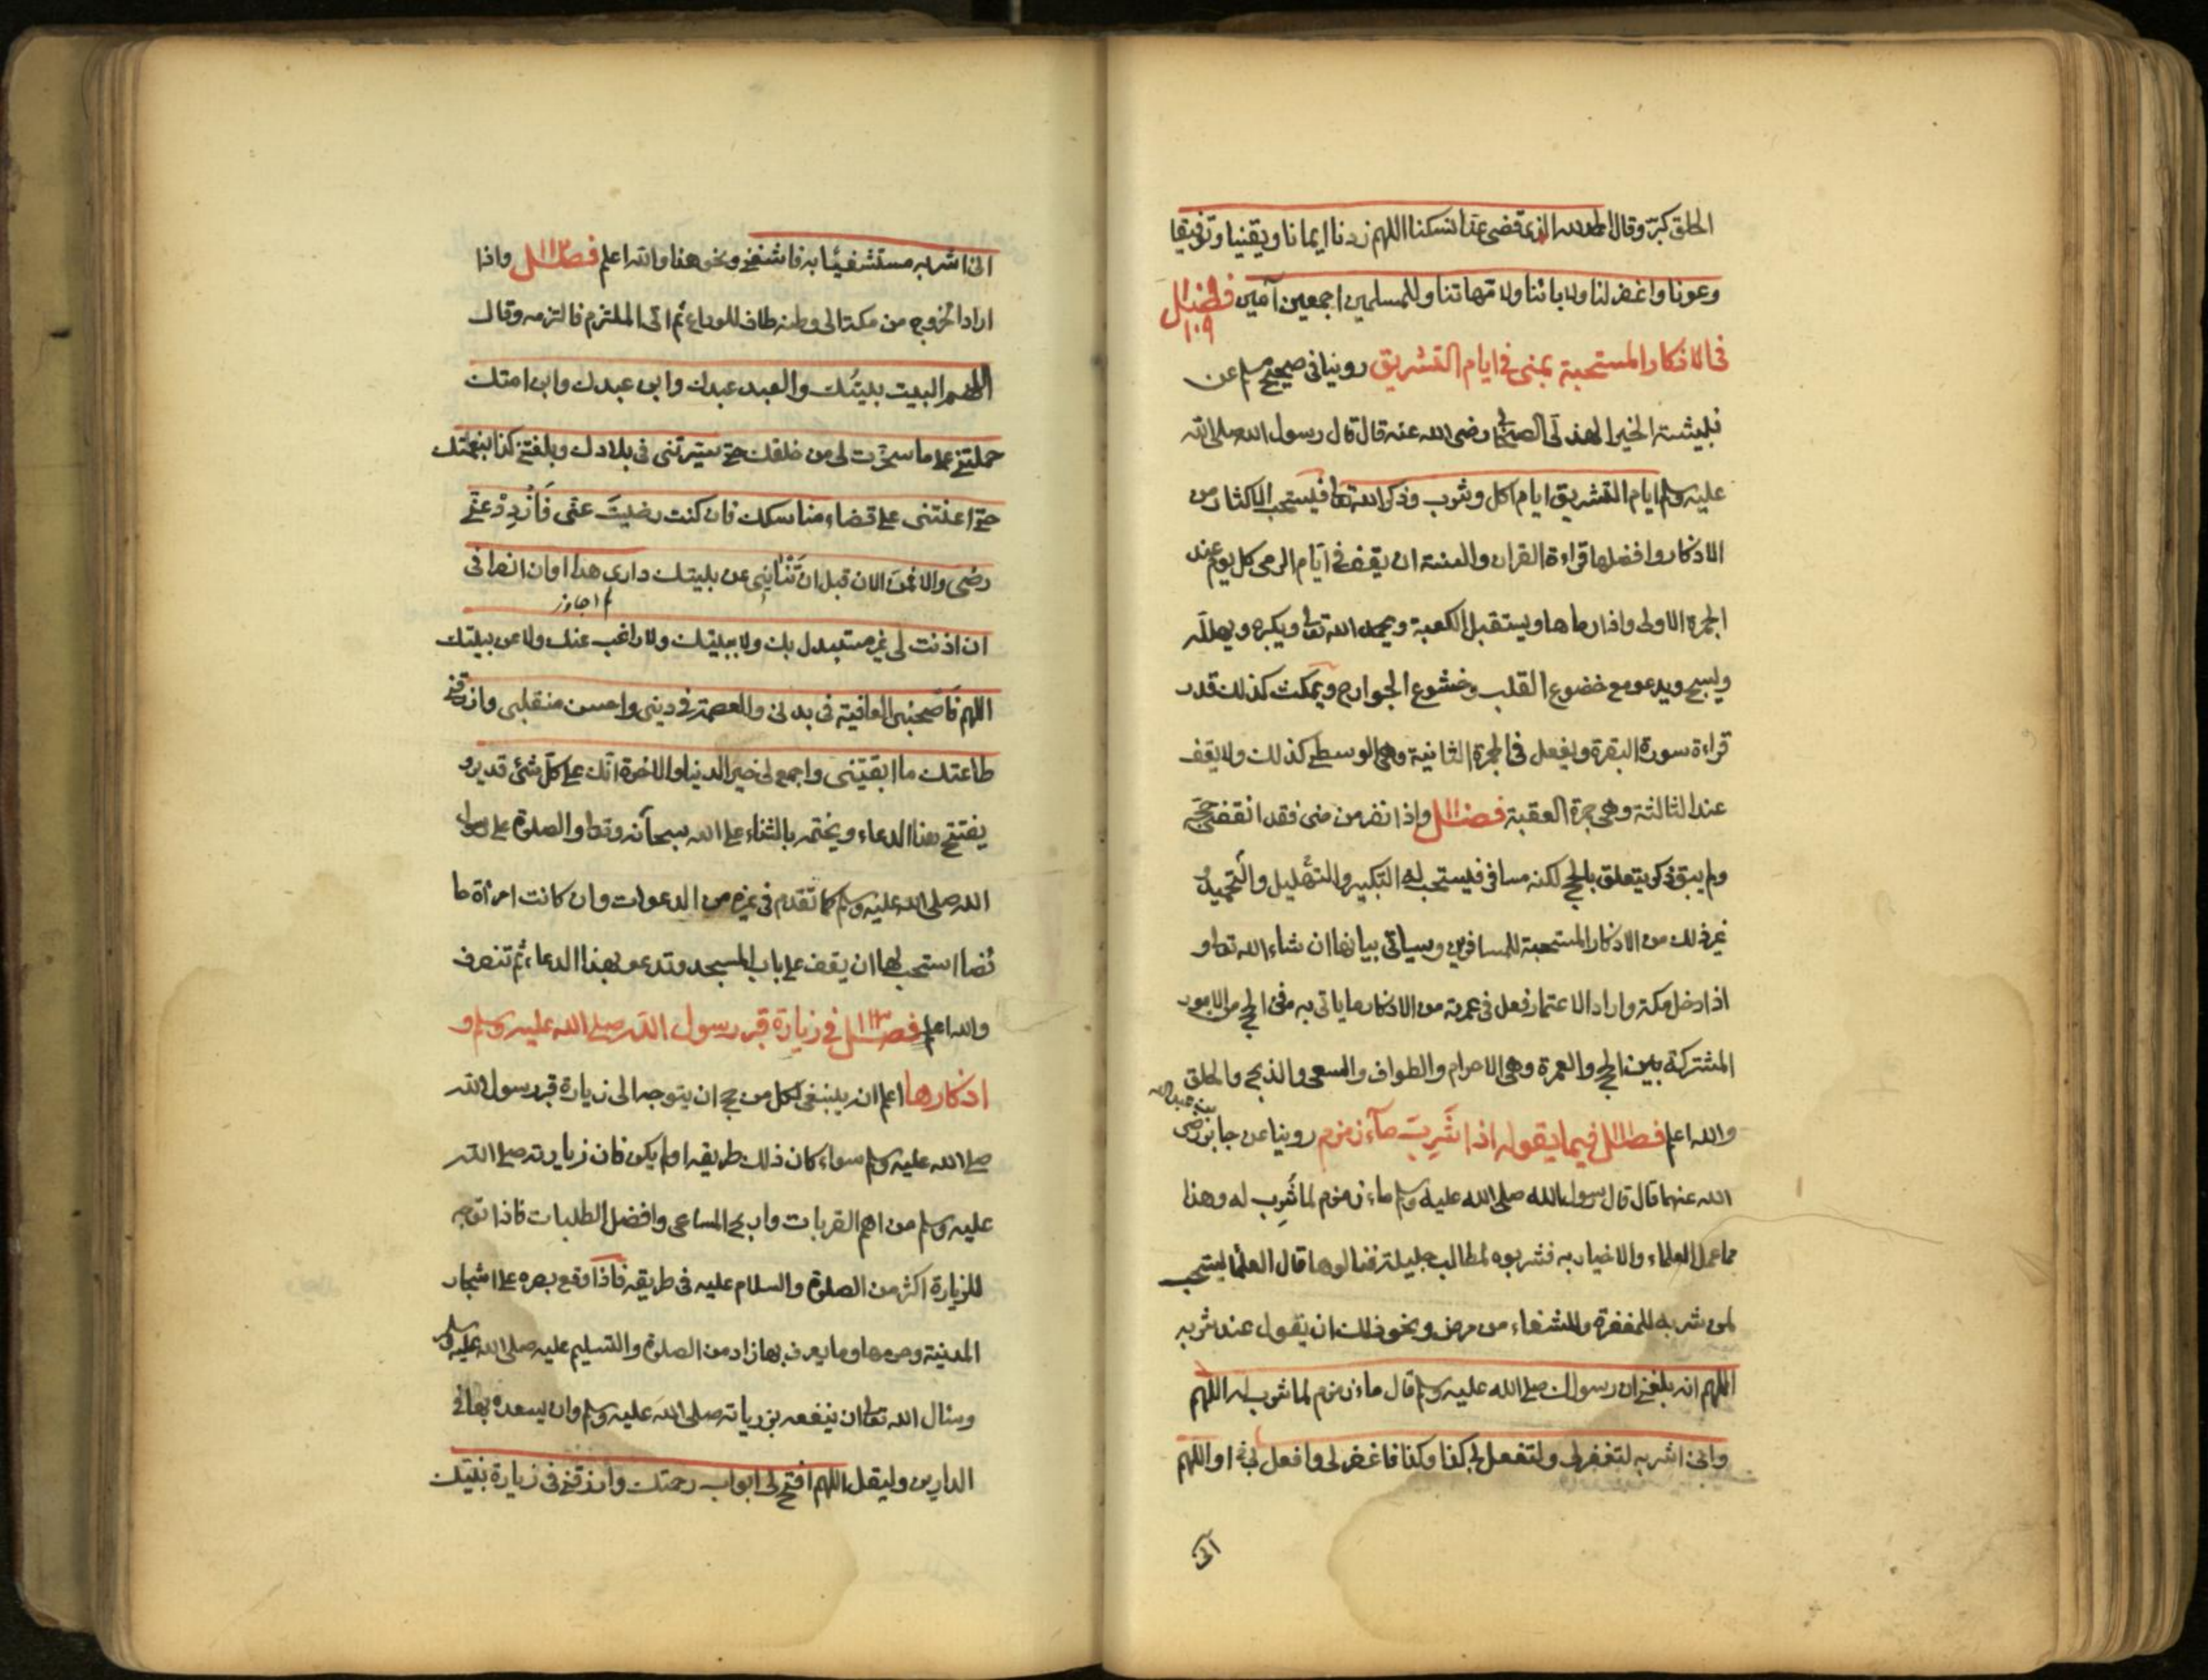 الحلق كبّر وقال الحمد لله الذى قضى عنا نسكنا اللهم زدنا ايمانا ويقينا وتوفيقا
وعونا واغفر لنا ولابائنا ولامهاتنا وللمسلمين اجمعين آمين فصل
١٠٩
فى الاذكار المستحبة بمنى فى ايام التشريق روينا فى صحيح مسلم عن
نبيشة الخير الهذلى الصحابى رضى الله عنه قال قال رسول الله صلى الله
عليه وسلم ايام التشريق ايام اكل وشرب وذكر الله تعا فيستحب الاكثار من
الاذكار وافضلها قراءة القران والسنة ان يقف فى ايّام الرمى كل يوم عند
الجمرة الاولى واذا رماها ويستقبل الكعبة ويحمد الله تعا ويكبره ويهلله
ويسبح ويدعو مع خضوع القلب وخشوع الجوارح ويمكث كذلك قدر
قراءة سورة البقرة ويفعل فى الجمرة الثانية وهى الوسطى كذلك ولا يقف
عند الثالثة وهى جمرة العقبة فصل واذا نفر من منى فقد انقضى حجّه
ولم يبق ذكر يتعلق بالحج لكنه مسافر فيستحب له التكبير والتهليل والتحميد و
غير ذلك من الاذكار المستحبة للمسافرين وسياتى بيانها ان شاء الله تعا و
اذا دخل مكة واراد الاعتمار فعل فى عمرته من الاذكار ما ياتى به فى الحج من الامور
المشتركة بين الحج والعمرة وهى الاحرام والطواف والسعى والذبح والحلق
والله اعلم فصل فيما يقوله اذا شَرِبَ مآء زمزم روينا عن جابر بن عبد الله رضى
الله عنهما قال قال رسول الله صلى الله عليه وسلم ماء زمزم لما شُرِب له وهذا
مما عمل العلماء والاخيار به فشربوه لمطالب جليلة فنالوها قال العلما يستحب
لمن شربه للمغفرة وللشفاء من مرض ونحو ذلك ان يقول عند شربه
اللهم انه بلغنى ان رسولك صلى الله عليه وسلم قال ماء زمزم لما شرب له اللهم
وانى اشربه لتغفر لى ولتفعل لى كذا وكذا فاغفر لى وافعل بى او اللهم
انى
انى اشربه مستشفيًا به فاشفنى ونحو هذا والله اعلم فصل واذا
اراد الخروج من مكة الى وطنه طاف للوداع ثم اتى الملتزم فالتزمه وقال
اللهم البيت بيتك والعبد عبدك وابن عبدك وابن امتك
حملتنى على ما سخرت لى من خلقك حتى سيّرتنى فى بلادك وبلغتنى كذا بنعمتك
حتى اعنتنى على قضاء مناسكك فان كنت رضيتَ عنّى فَازْدِدْ عنّى
رضى والا فمن الان قبل ان تَنْأى عن بيتك دارى هذا اوان انصرافى
ان اذنت لى غير مستبدل بك ولا ببيتك ولا راغب عنك ولا عن بيتك
اللهم فَاصحبنى العافية فى بدنى والعصمة فى دينى واحسن منقلبى وارزقنى
طاعتك ما ابقيتنى واجمع لى خير الدنيا والاخرة انّك على كل شئ قدير و
يفتتح هذا الدعاء ويختمه بالثناء على الله سبحانه وتعا والصلوة على رسول
الله صلى الله عليه وسلم كما تقدم فى غيره من الدعوات وان كانت امرأة حا
ئضا استحب لها ان يقف على باب المسجد وتدعو بهذا الدعاء ثم تنصرف
والله اعلم فصل فى زيارة قبر رسول الله صلى الله عليه وسلم و
اذكارها اعلم انه ينبغى لكل من حج ان يتوجه الى زيارة قبر رسول الله
صلى الله عليه وسلم سواء كان ذلك طريقه او لم يكن فان زيارته صلى الله
عليه وسلم من اهم القربات واربح المساعى وافضل الطلبات فاذا توجه
للزيارة اكثر من الصلوة والسلام عليه فى طريقه فاذا وقع بصره على اشجار
المدينة وحرمها وما يعرف بها زاد من الصلوة والتسليم عليه صلى الله عليه وسلم
وسال الله تعا ان ينفعه بزيارته صلى الله عليه وسلم وان يسعده بها فى
الدارين وليقل اللهم افتح لى ابواب رحمتك وارزقنى فى زيارة نبيّك